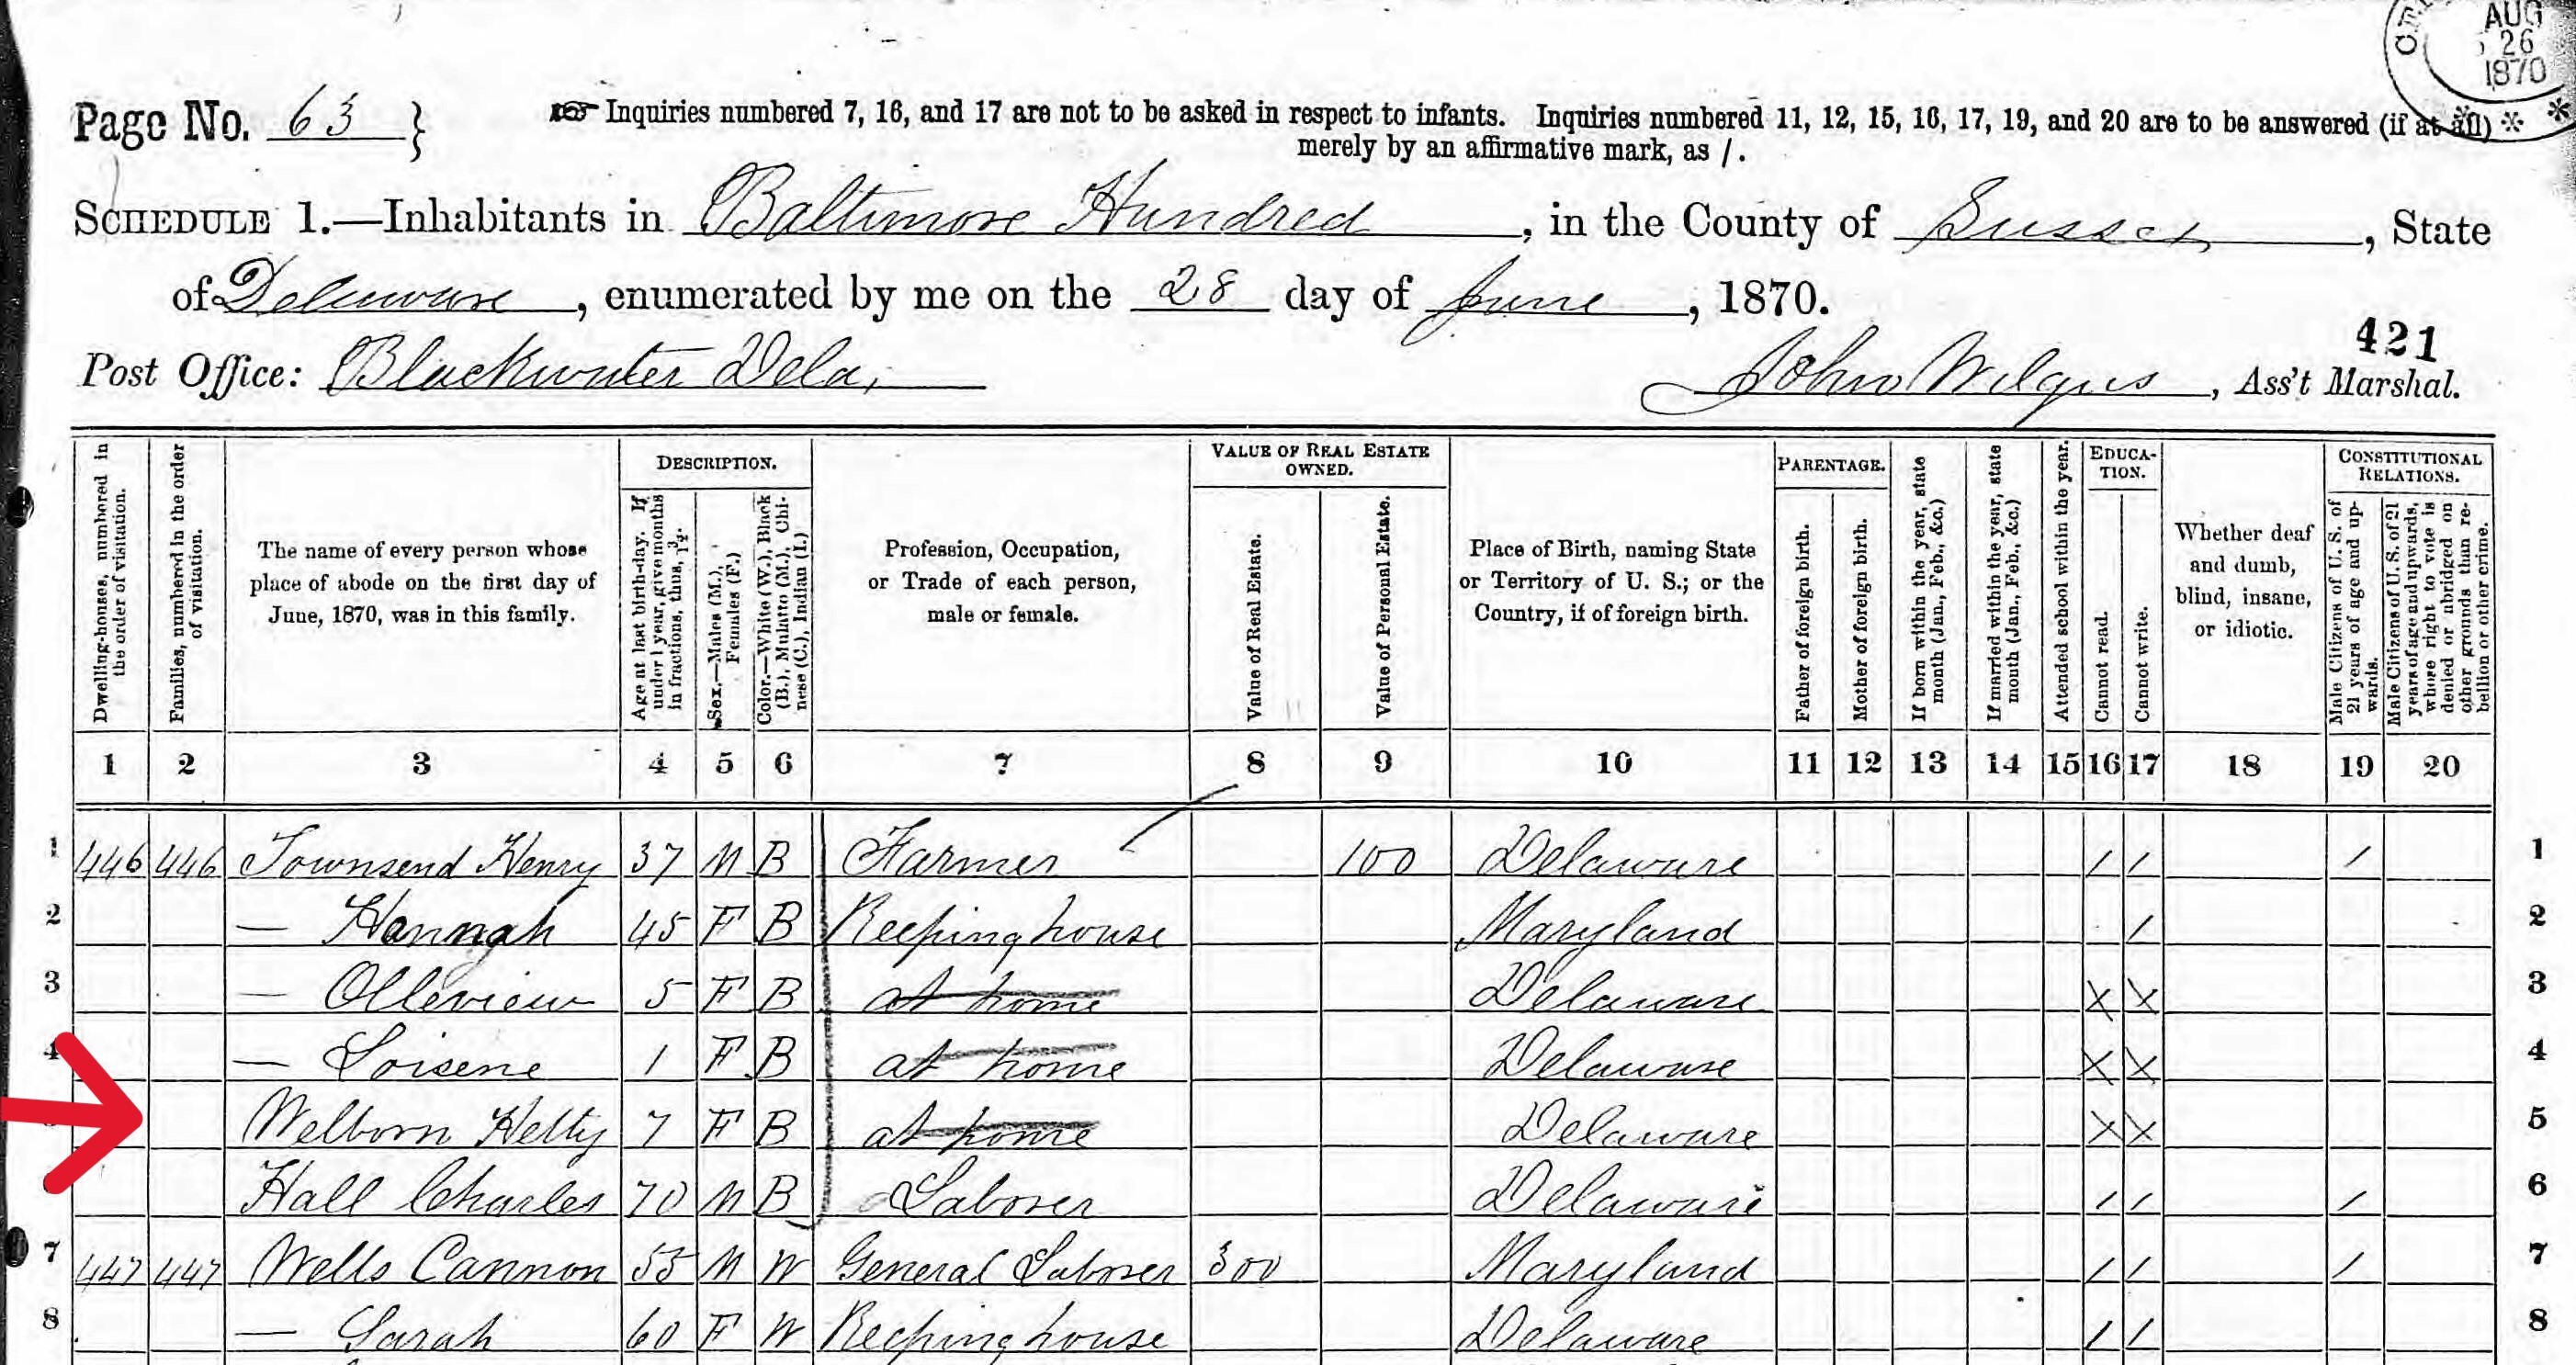 AUG
26
1870
Page No. 63 }
Inquiries numbered 7, 16, and 17 are not to be asked in respect to infants. Inquiries numbered 11, 12, 15, 16, 17, 19, and 20 are to be answered (if at all)
merely by an affirmative mark, as /.
SCHEDULE 1.—Inhabitants in Baltimore Hundred, in the County of Sussex, State
of Delaware, enumerated by me on the 28 day of June, 1870.
421
Post Office: Blackwater Dela, John Wilgus, Ass't Marshal.
Dwelling-houses, numbered in the order of visitation.
Families, numbered in the order of visitation.
The name of every person whose
place of abode on the first day of
June, 1870, was in this family.
DESCRIPTION.
Age at last birth-day. If under 1 year, give months in fractions, thus, 3/12.
Sex.—Males (M.), Females (F.)
Color.—White (W.), Black (B.), Mulatto (M.), Chinese (C.), Indian (I.)
Profession, Occupation,
or Trade of each person,
male or female.
VALUE OF REAL ESTATE
OWNED.
Value of Real Estate.
Value of Personal Estate.
Place of Birth, naming State
or Territory of U. S.; or the
Country, if of foreign birth.
PARENTAGE.
Father of foreign birth.
Mother of foreign birth.
If born within the year, state month (Jan., Feb., &c.)
If married within the year, state month (Jan., Feb., &c.)
Attended school within the year.
EDUCA-
TION.
Cannot read.
Cannot write.
Whether deaf
and dumb,
blind, insane,
or idiotic.
CONSTITUTIONAL
RELATIONS.
Male Citizens of U. S. of 21 years of age and upwards.
Male Citizens of U. S. of 21 years of age and upwards, whose right to vote is denied or abridged on other grounds than rebellion or other crime.
1 2 3 4 5 6 7 8 9 10 11 12 13 14 15 16 17 18 19 20
1 446 446 Townsend Henry 37 M B Farmer 100 Delaware / / / 1
2 — Hannah 45 F B Keeping house Maryland / 2
3 — Olleview 5 F B at home Delaware X X 3
4 — Loisene 1 F B at home Delaware X X 4
Welborn Hetty 7 F B at home Delaware X X 5
Hall Charles 70 M B Laborer Delaware / / / 6
7 447 447 Wells Cannon 55 M W General Laborer 300 Maryland / / / 7
8 — Sarah 60 F W Keeping house Delaware / / 8